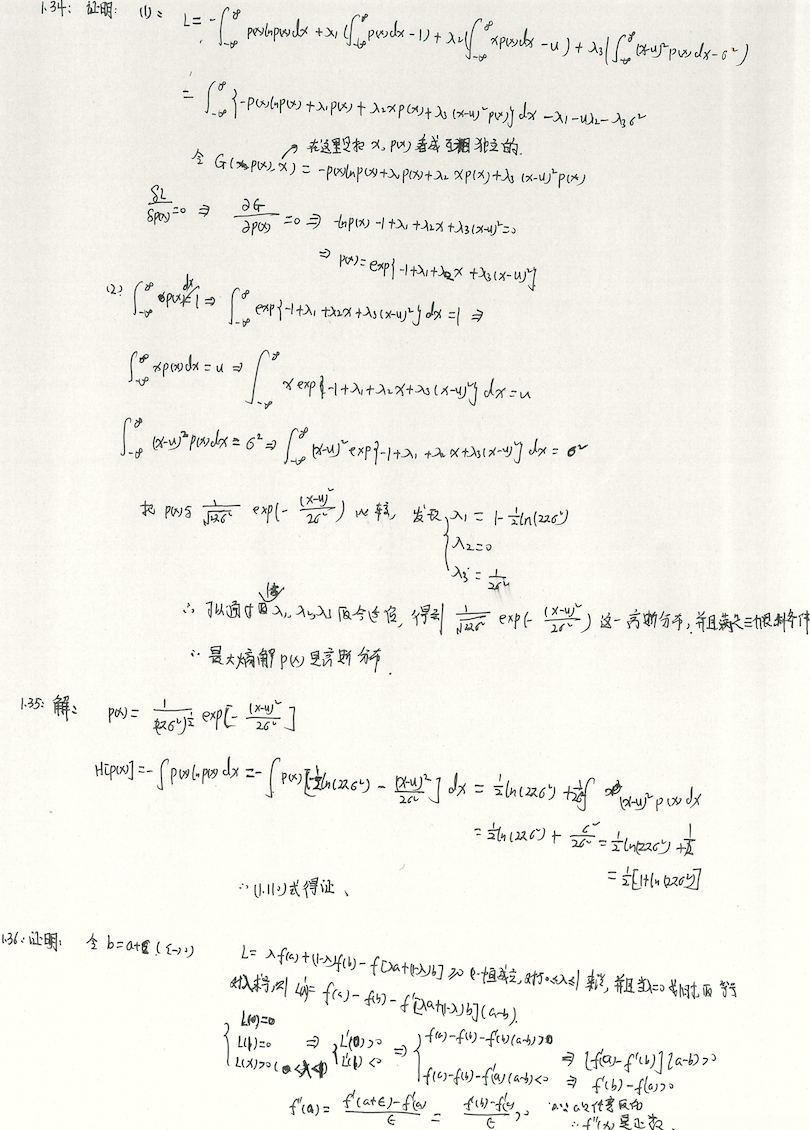 1.34: 证明: (1): L = -∫_{-∞}^{∞} p(x)lnp(x)dx + λ₁(∫_{-∞}^{∞} p(x)dx - 1) + λ₂(∫_{-∞}^{∞} xp(x)dx - u) + λ₃(∫_{-∞}^{∞} (x-u)²p(x)dx - σ²)
= ∫_{-∞}^{∞} {-p(x)lnp(x) + λ₁p(x) + λ₂xp(x) + λ₃(x-u)²p(x)} dx - λ₁ - uλ₂ - λ₃σ²
在这里只把 x, p(x) 看成互相独立的.
令 G(p(x), x) = -p(x)lnp(x) + λ₁p(x) + λ₂xp(x) + λ₃(x-u)²p(x)
δL/δp(x) = 0 ⇒ ∂G/∂p(x) = 0 ⇒ -lnp(x) - 1 + λ₁ + λ₂x + λ₃(x-u)² = 0
⇒ p(x) = exp{-1+λ₁+λ₂x+λ₃(x-u)²}
(2) ∫_{-∞}^{∞} p(x)dx = 1 ⇒ ∫_{-∞}^{∞} exp{-1+λ₁+λ₂x+λ₃(x-u)²}dx = 1 ⇒
∫_{-∞}^{∞} xp(x)dx = u ⇒ ∫_{-∞}^{∞} x exp{-1+λ₁+λ₂x+λ₃(x-u)²}dx = u
∫_{-∞}^{∞} (x-u)²p(x)dx = σ² ⇒ ∫_{-∞}^{∞} (x-u)² exp{-1+λ₁+λ₂x+λ₃(x-u)²}dx = σ²
把 p(x)与 1/√(2πσ²) exp(-(x-u)²/2σ²) 比较, 发现 { λ₁ = 1-½ln(2πσ²)
λ₂ = 0
λ₃ = 1/2σ²
∴ 可以通过 λ₁, λ₂, λ₃ 取合适值, 得到 1/√(2πσ²) exp(-(x-u)²/2σ²) 这一高斯分布, 并且满足三个限制条件
∴ 最大熵解 p(x) 是高斯分布.
1.35: 解: p(x) = 1/(2πσ²)^½ exp[-(x-u)²/2σ²]
H[p(x)] = -∫p(x)lnp(x)dx = -∫p(x)[-½ln(2πσ²) - (x-u)²/2σ²]dx = ½ln(2πσ²) + 1/2σ² ∫(x-u)²p(x)dx
= ½ln(2πσ²) + σ²/2σ² = ½ln(2πσ²) + ½
= ½[1+ln(2πσ²)]
∴ (1.110)式得证、
1.36: 证明: 令 b=a+ε (ε→0) L = λf(a)+(1-λ)f(b) - f[λa+(1-λ)b] ≥0 恒成立, 对于0≤λ≤1 来说, 并且当λ=0 或1时 取 等号
对λ求导, 则 L'(λ) = f(a) - f(b) - f'[λa+(1-λ)b](a-b).
{ L(0)=0
L(1)=0 ⇒ { L'(0)>0 ⇒ { f(a)-f(b)-f'(b)(a-b)>0
L(λ)>0 (0<λ<1) L'(1)<0 f(a)-f(b)-f'(a)(a-b)<0 ⇒ [f'(a)-f'(b)](a-b)>0
⇒ f'(b)-f'(a)>0
f''(a) = (f'(a+ε)-f'(a))/ε = (f'(b)-f'(a))/ε >0
∴ f''(x) 是正数.